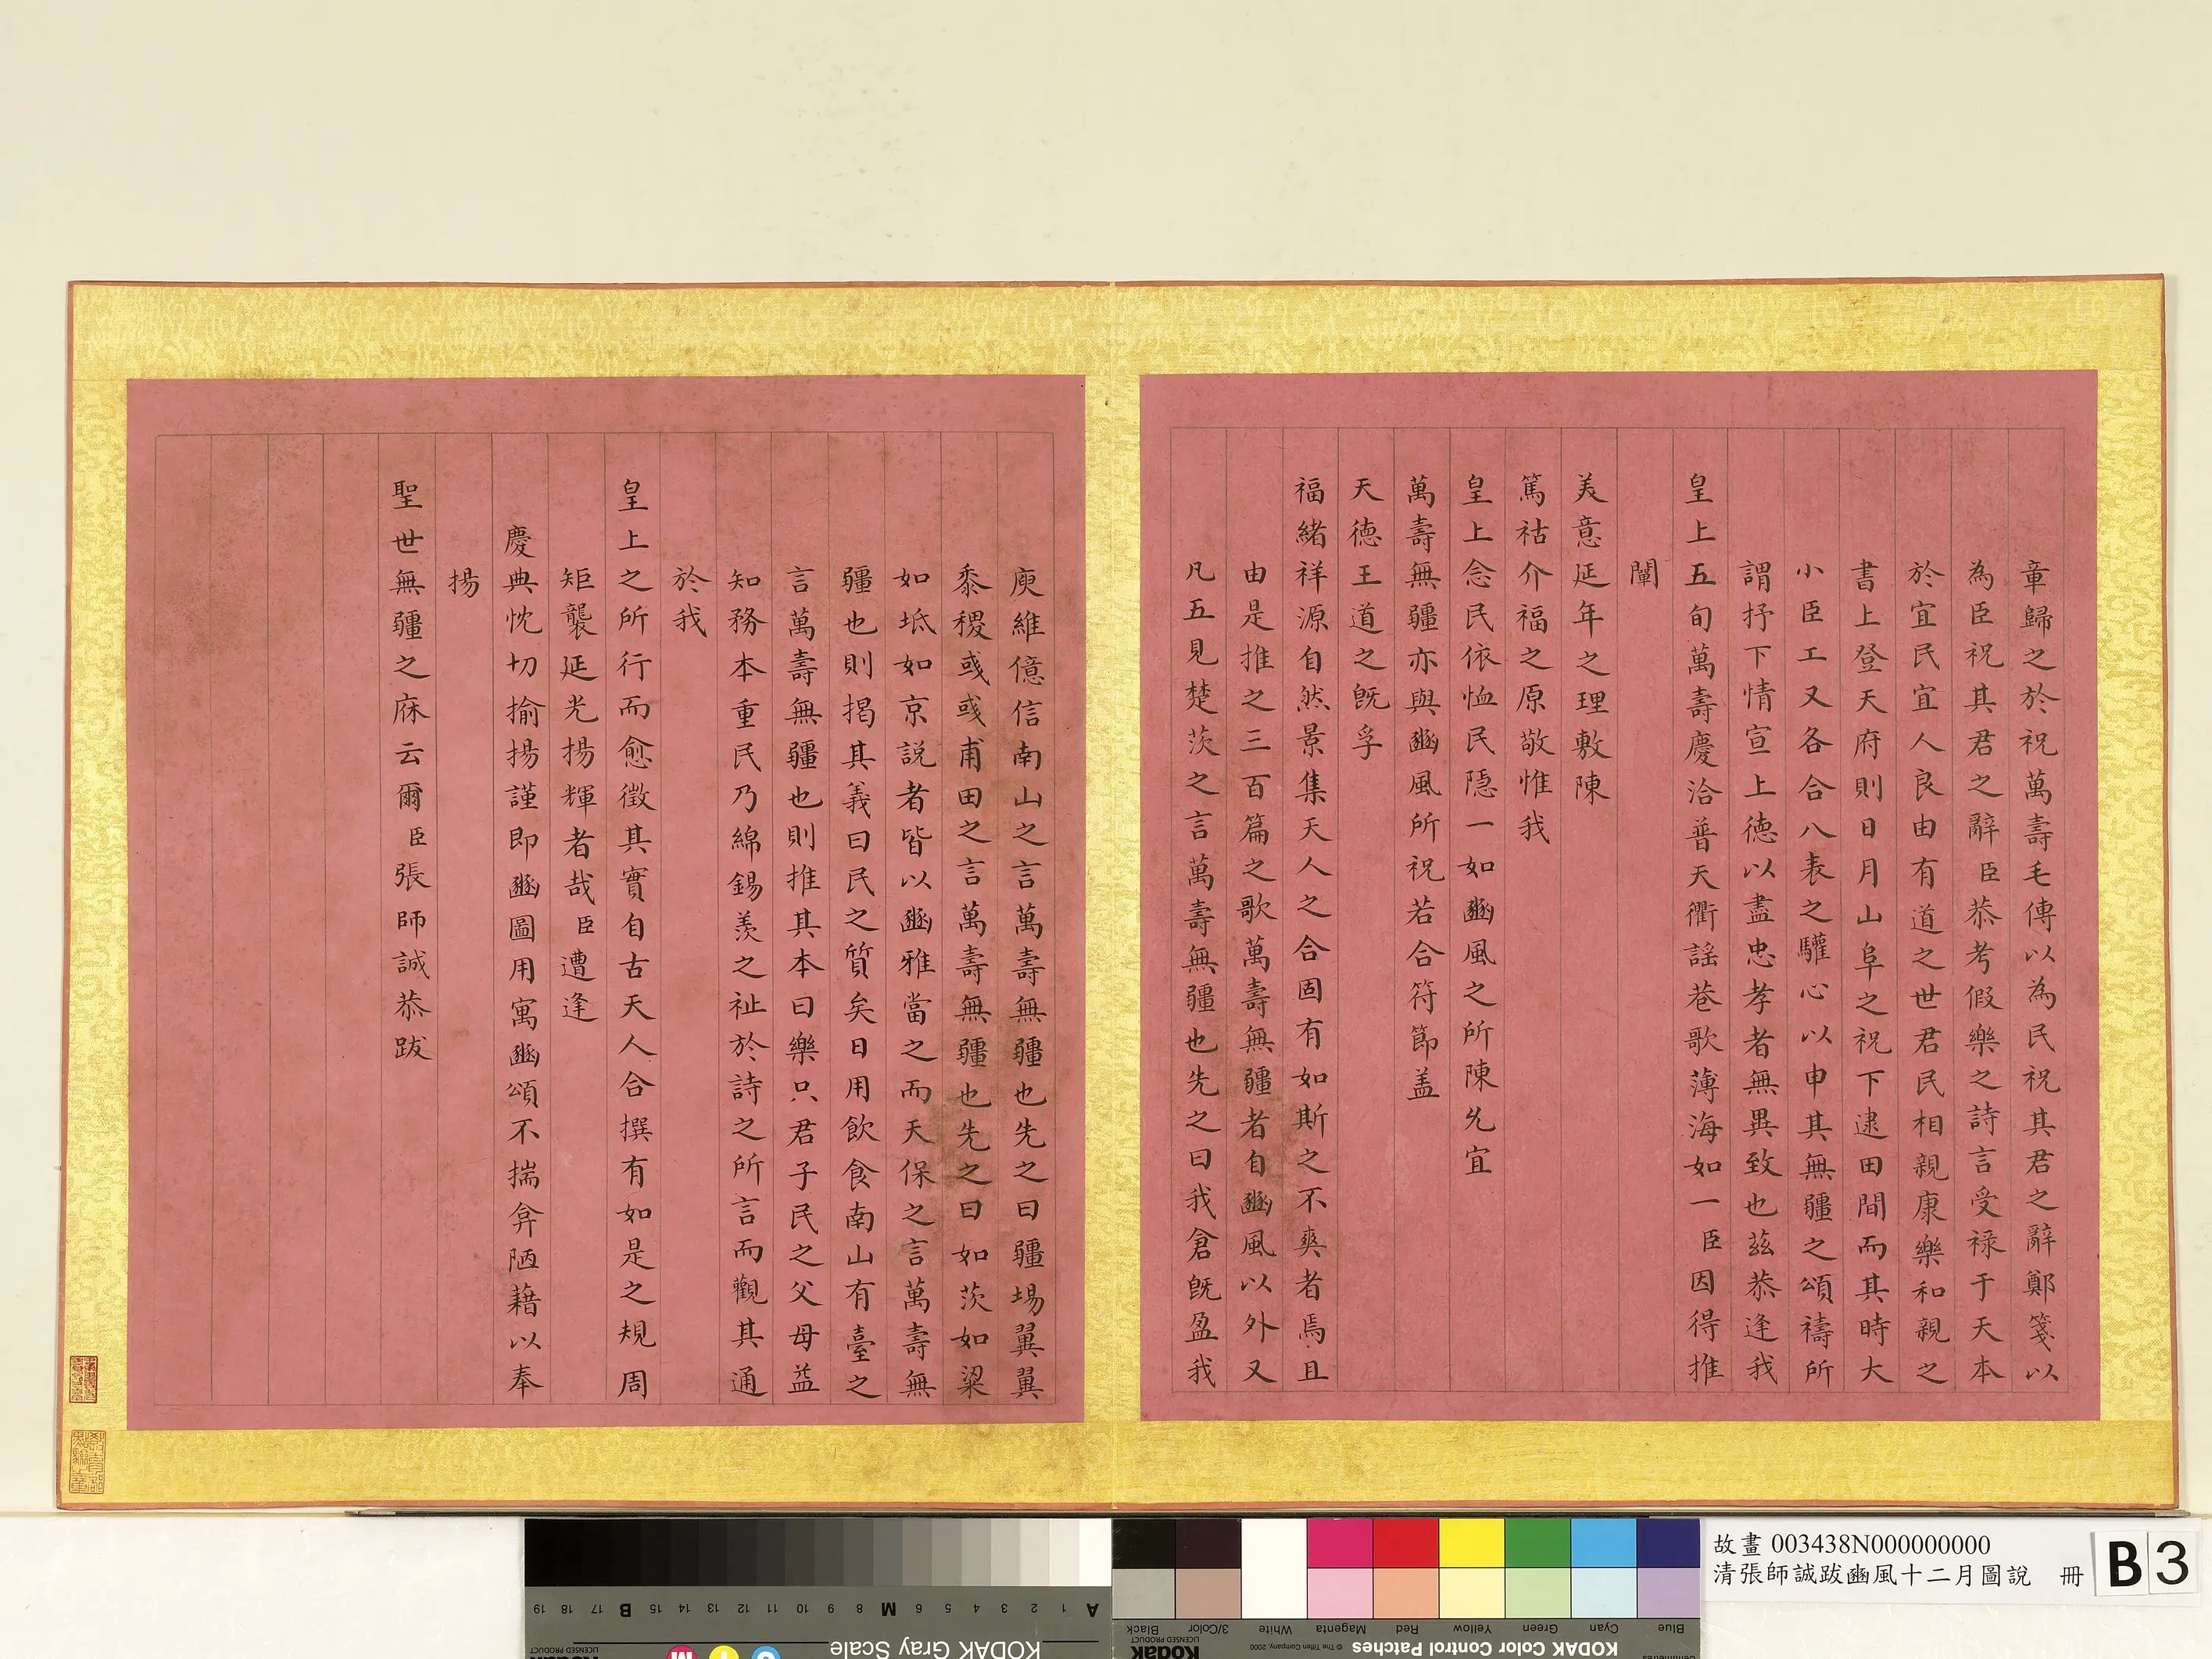 章歸之於祝萬壽毛傳以為民祝其君之辭鄭箋以
為臣祝其君之辭臣恭考假樂之詩言受祿于天本
於宜民宜人良由有道之世君民相親康樂和親之
書上登天府則日月山阜之祝下逮田間而其時大
小臣工又各合八表之驩心以申其無疆之頌禱所
謂抒下情宣上德以盡忠孝者無異致也茲恭逢我
皇上五旬萬壽慶洽普天衢謠巷歌薄海如一臣因得推
闡
美意延年之理敷陳
篤祜介福之原敬惟我
皇上念民依恤民隱一如豳風之所陳允宜
萬壽無疆亦與豳風所祝若合符節盖
天德王道之既孚
福緒祥源自然景集天人之合固有如斯之不爽者焉且
由是推之三百篇之歌萬壽無疆者自豳風以外又
凡五見楚茨之言萬壽無疆也先之曰我倉既盈我
庾維億信南山之言萬壽無疆也先之曰疆埸翼翼
黍稷彧彧甫田之言萬壽無疆也先之曰如茨如梁
如坻如京說者皆以豳雅當之而天保之言萬壽無
疆也則揭其義曰民之質矣日用飲食南山有臺之
言萬壽無疆也則推其本曰樂只君子民之父母益
知務本重民乃綿錫羨之祉於詩之所言而觀其通
於我
皇上之所行而愈徵其實自古天人合撰有如是之規周
矩襲延光揚輝者哉臣遭逢
慶典忱切揄揚謹即豳圖用寓豳頌不揣弇陋藉以奉
揚
聖世無疆之庥云爾臣張師誠恭跋
故畫 003438N000000000
清張師誠跋豳風十二月圖說 冊
B 3
KODAK Gray Scale
A 1 2 3 4 5 6 M 8 9 10 11 12 13 14 15 B 17 18 19
C Y M
Kodak
LICENSED PRODUCT
KODAK Color Control Patches
© The Tiffen Company, 2000
Kodak
LICENSED PRODUCT
Blue Cyan Green Yellow Red Magenta White 3/Color Black
Centimetres